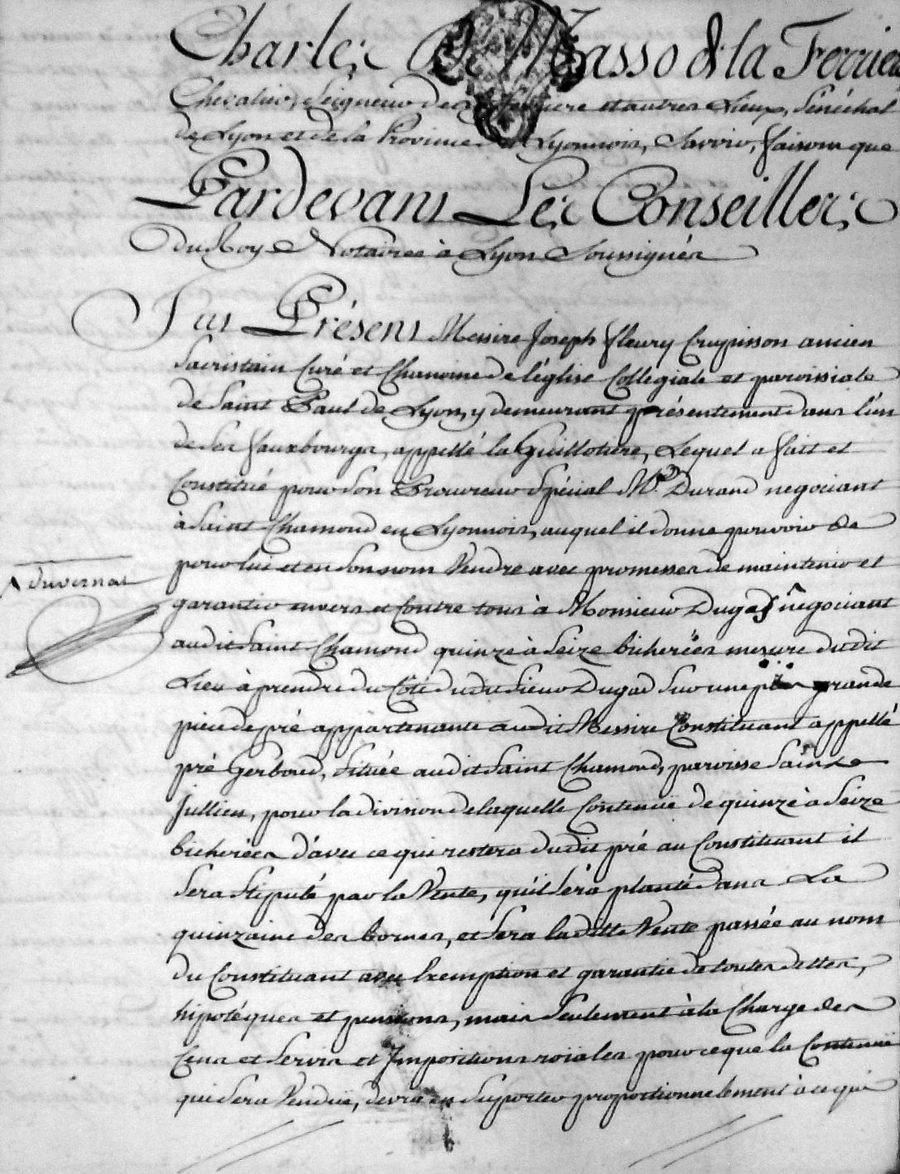 Charles De Masso de la Ferriere
Chevalier, Seigneur de la Ferriere et autres Lieux, Sénéchal
de Lyon et de la Province de Lyonnois, Savoir, faisons que
Pardevant Les Conseillers
du Roy Notaires à Lyon Soussignés
Fut Présent Messire Joseph fleury Crupisson ancien
Sacristain Curé et Chanoine de l'église Collegiale et paroissiale
de Saint Paul de Lyon, y demeurant présentement dans l'un
de ses fauxbourgs, appellé la Guillotiere, Lequel a fait et
Constitué pour son Procureur Spécial Mr. Durand negociant
à Saint Chamond en Lyonnois, auquel il donne pouvoir de
pour lui et en son nom Vendre avec promesses de maintenir et
Duvernat
garantir envers et Contre tous à Monsieur Dugas negociant
audit Saint Chamond quinze à Seize bicherées mesure dudit
Lieu à prendre du Côté dudit Sieur Dugas Sur une plus grande
piece de pré appartenante audit Messire Constituant appellé
pré Gerboud, Située audit Saint Chamond, paroisse Saint
Jullien, pour la division de laquelle Contenüe de quinze à Seize
bicherées d'avec ce qui restera dudit pré au Constituant il
Sera Stipulé par la Vente, qu'il Sera planté dans La
quinzaine des bornes, et Sera laditte Vente passée au nom
du Constituant avec Exemption et garantie de toutes dettes,
hipotéques et pensions, mais Seulement à la Charge des
Cens et Servis et Impositions roiales pour ce que la Contenüe
qui Sera Vendüe, devra en Suporter proportionnelement à ce qui